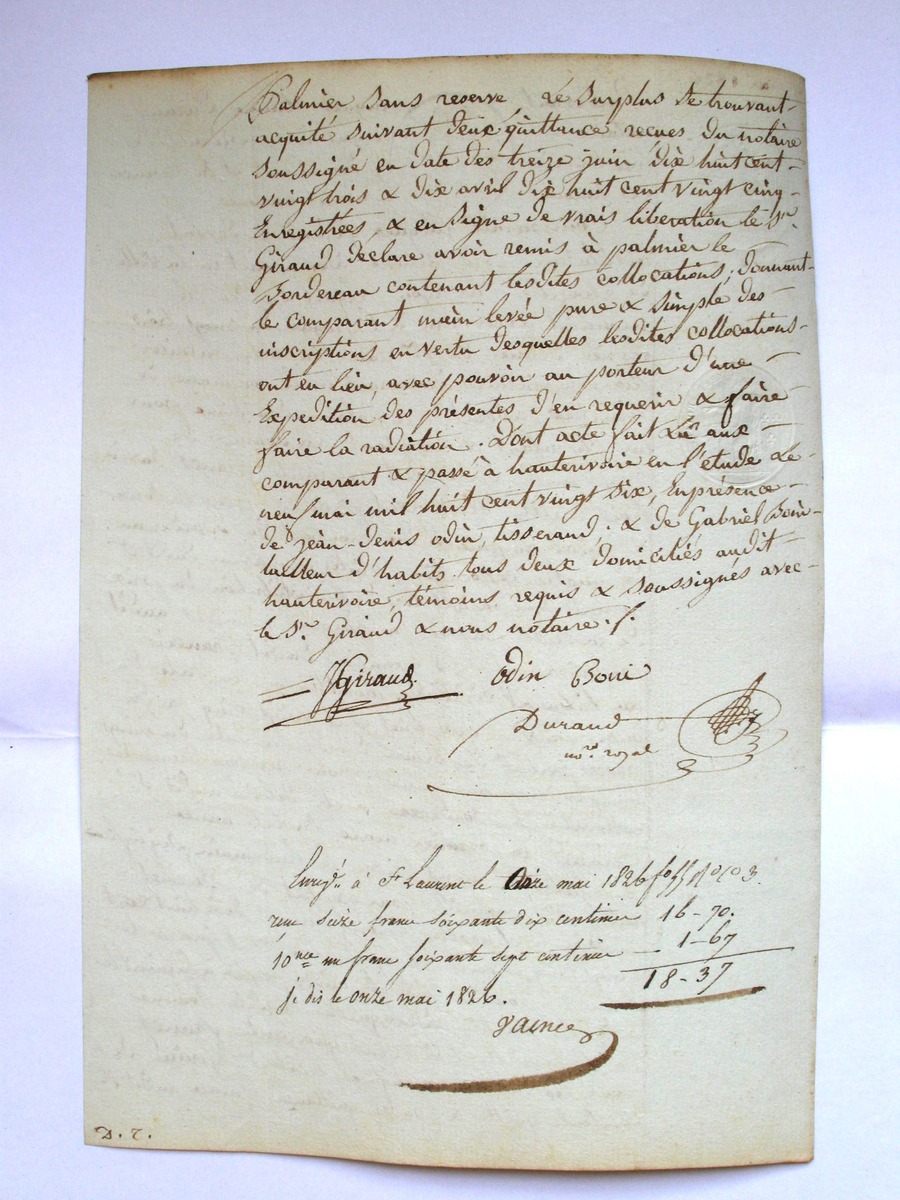 Palmier sans reserve, le surplus se trouvant
acquité suivant deux quittance recues du notaire
soussigné en date des treize juin dix huit cent
vingt trois & dix avril dix huit cent vingt cinq
Enregistrées, & en signe de vrais liberation le Sr.
Giraud déclare avoir remis à palmier le
Bordereau contenant lesdites collocations; donnant
le comparant main levée pure & simple des
inscriptions en vertu desquelles lesdites collocations
ont eu lieu, avec pouvoir au porteur d'une
Expedition des présentes d'en requerir & faire
faire la radiation. Dont acte fait Lu aux
comparant & passé à hauterivoire en l'étude Le
neuf mai mil huit cent vingt six, En présence
de jean-denis odin, tisserand, & de Gabriel Boin
tailleur d'habits tous deux domiciliés audit
hauterivoire, témoins requis & soussignés avec
le Sr. Giraud & nous notaire ./.
JGiraud odin
Durand
nore. royal
Enregé. à St Laurent le Onze mai 1826
reçu seize franc soixante dix centimes 16-70.
10me un franc soixante sept centimes — 1-67
18-37
je dis le onze mai 1826.
D. T.